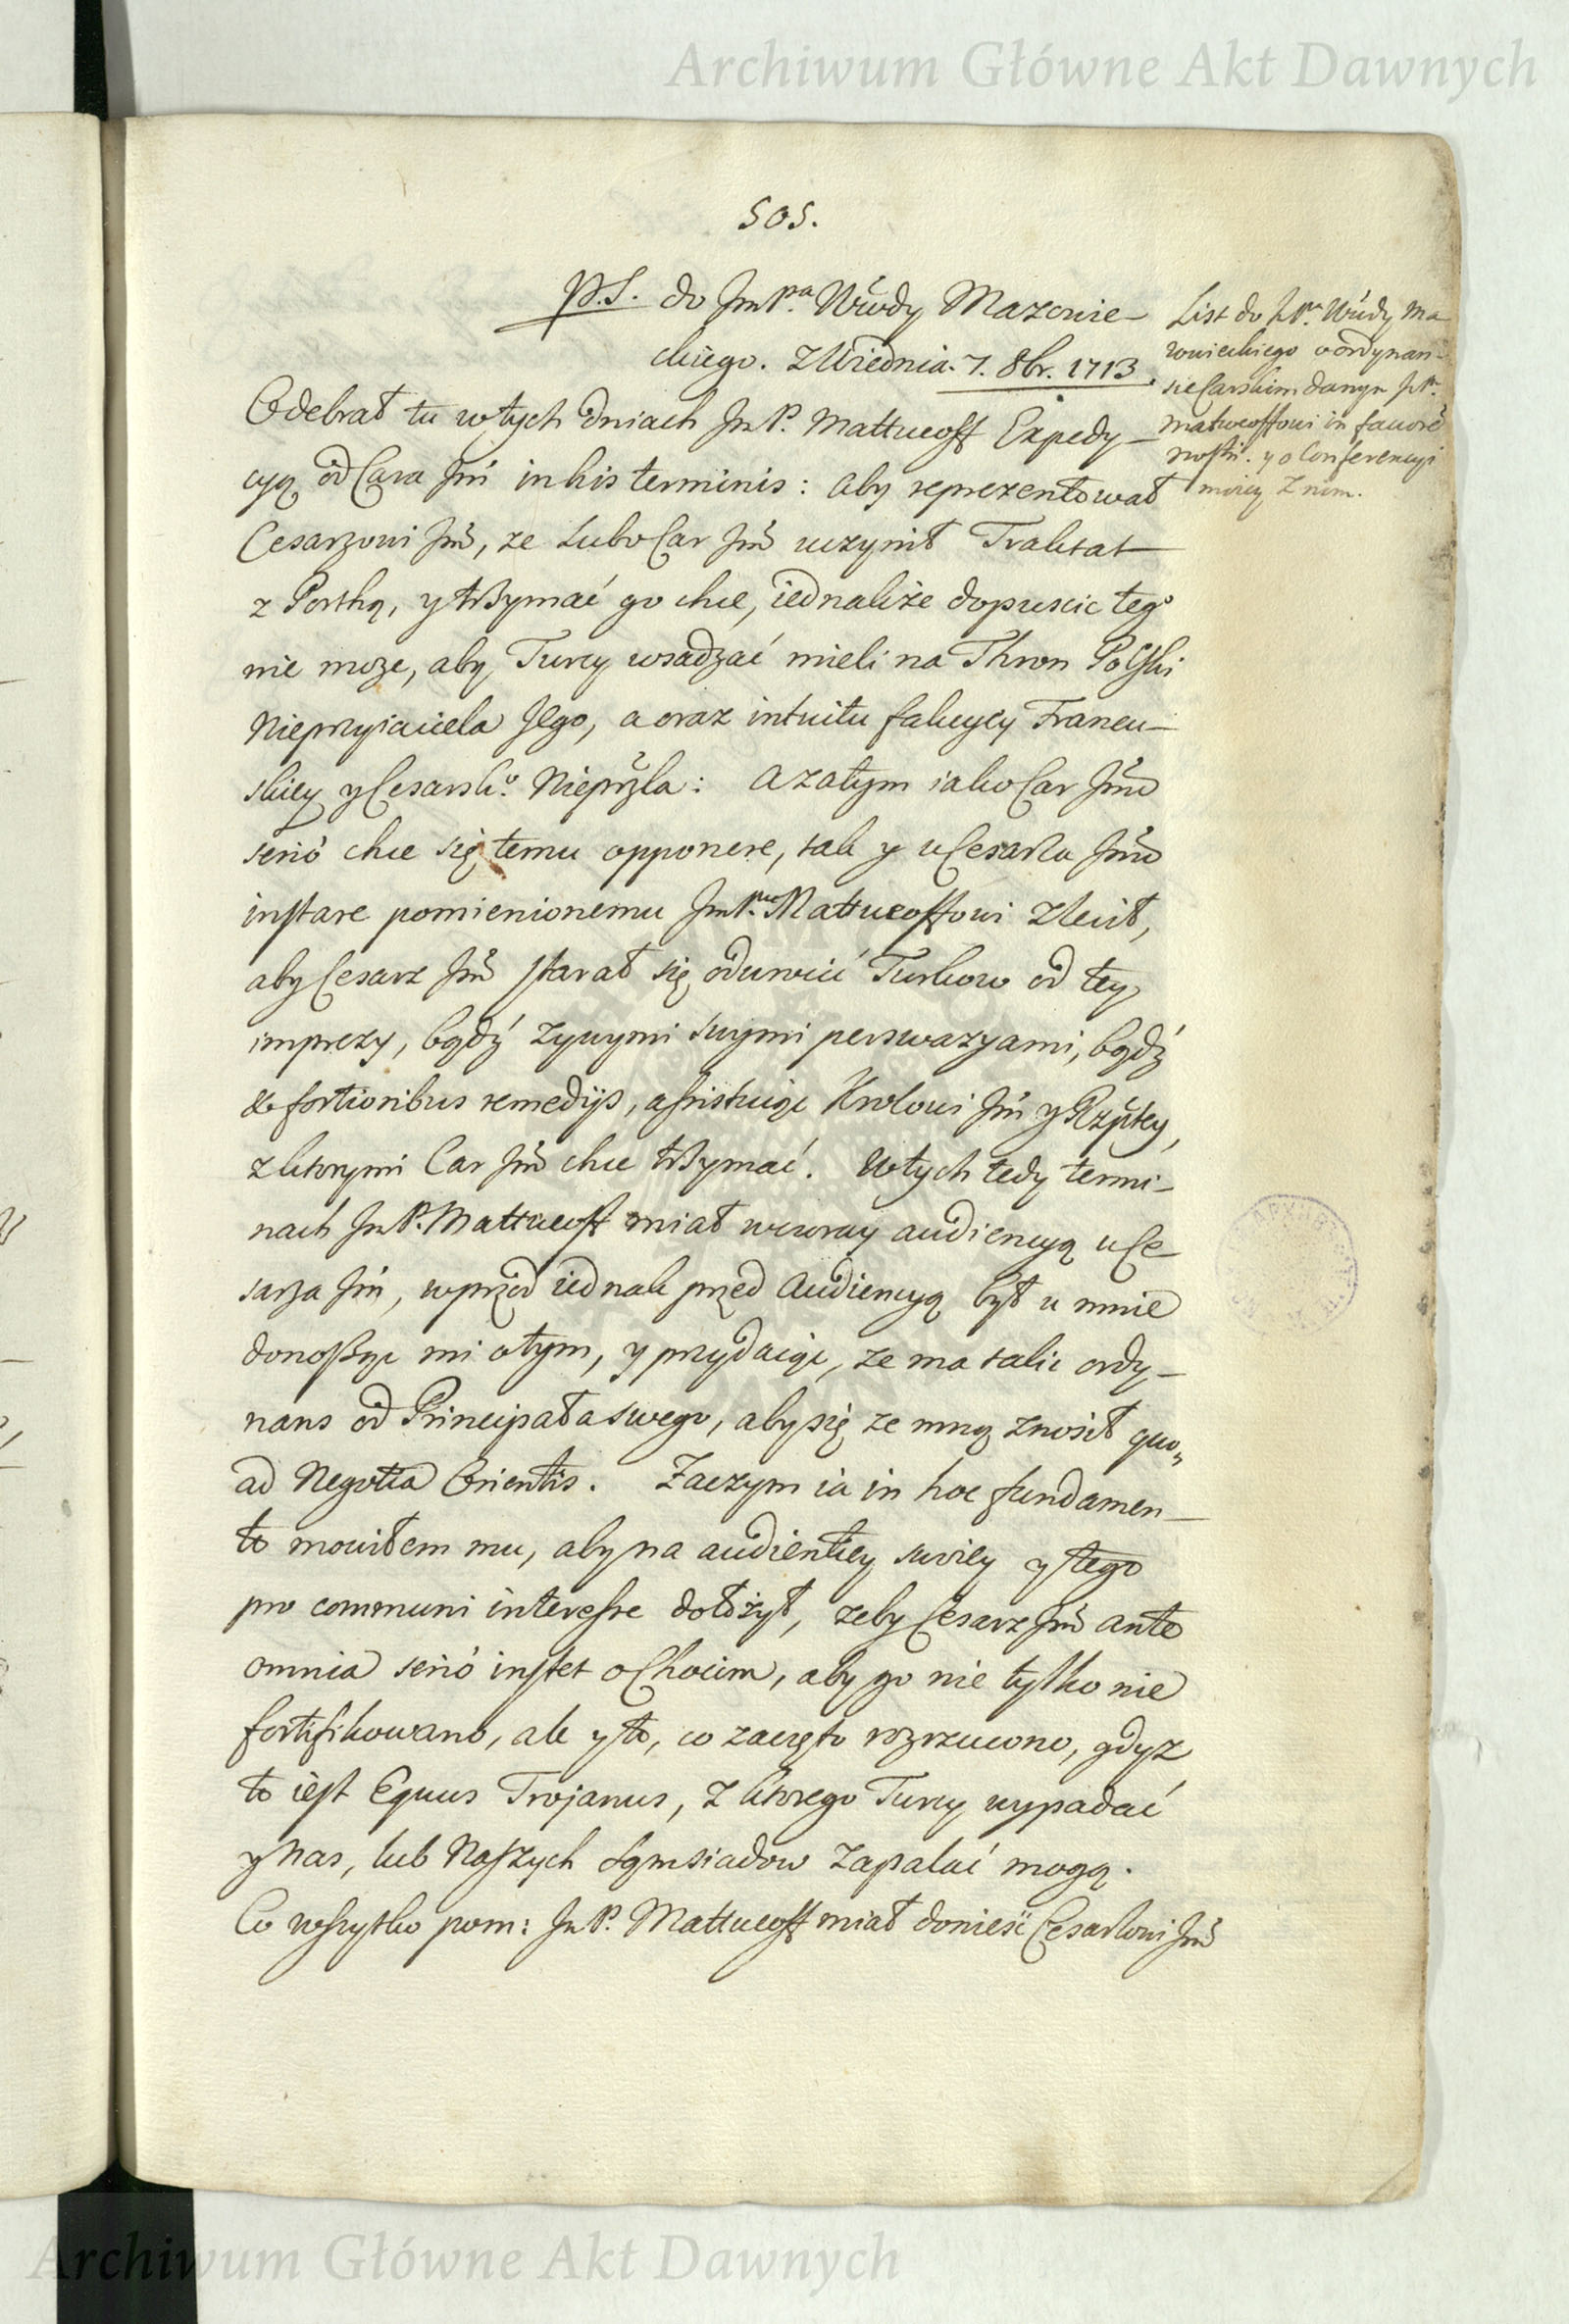 Archiwum Główne Akt Dawnych
505.
P.S. do JmPa. Wwdy Mazowie-
ckiego. z Wiednia. 7. 8br. 1713.
List do JPa. Wwdy Ma-
zowieckiego o ordynan-
sie Carskim danym JPu.
Matweoffowi in favorē
nostri. y o Conferencyi
moiey z nim.
Odebrał tu w tych dniach JmP. Mattueoff Expedy-
cyą od Cara Jm̃ in his terminis: aby reprezentował
Cesarzowi Jm̃, ze lubo Car Jm̃ uczynił Traktat
z Porthą, y trzymać go chce, iednakże dopuscic tego
nie moze, aby Turcy wsadzać mieli na Thron Polski
Nieprzyiaciela Jego, a oraz intuitu fakcyey Francu-
skiey y Cesarsko. Nieprzla: A zatym iako Car Jm̃
serio chce się temu opponere, tak y u Cesarza Jm̃
instare pomienionemu JmPnu Mattueoffowi zlecił,
aby Cesarz Jm̃ starał się odwrocić Turkow od tey
imprezy, bądź zywymi swymi perswazyami, bądź
& fortioribus remedijs, assistuiąc Krolowi Jm̃ y Rzptey,
z ktorymi Car Jm̃ chce trzymać. W tych tedy termi-
nach JmP. Mattueoff miał wczoray audiencyą u Ce-
sarza Jm̃, wprzod iednak przed Audiencyą był u mnie
donosząc mi o tym, y przydaiąc, ze ma takie ordy-
nans od Principała swego, aby się ze mną znosił quo
ad Negotia Orientis. Zaczym ia in hoc fundamen-
to mowiłem mu, aby na audientiey swoiey y tego
pro communi interesse dołożył, zeby Cesarz Jm̃ ante
omnia serio instet o Chocim, aby go nie tylko nie
fortifikowano, ale y to, co zaczęto rozrzucono, gdyz
to iest Equus Trojanus, z ktorego Turcy wypadać
y Nas, lub Naszych Sąmsiadow zapalać mogą.
Co wszytko pom: JmP. Mattueoff miał donieść Cesarzowi Jm̃
Archiwum Główne Akt Dawnych